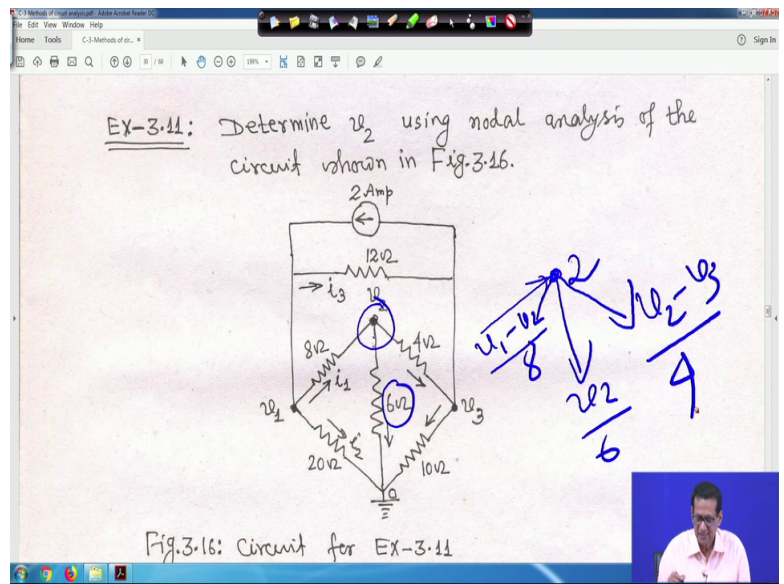 C-3-Methods of circuit analysis.pdf - Adobe Acrobat Reader DC
File Edit View Window Help
Home Tools C-3-Methods of cir... × Sign In
30 / 60
EX-3.11: Determine v₂ using nodal analysis of the
circuit shown in Fig.3.16.
2 Amp
12Ω
i₃
v₂
8Ω
4Ω
i₁
v₁
6Ω
v₃
i₂
20Ω
10Ω
0
Fig.3.16: Circuit for EX-3.11
2
v₁-v₂
8
v₂
6
v₂-v₃
4